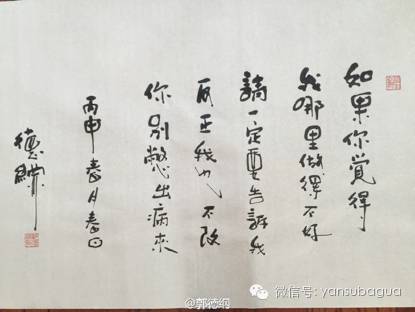 如果你覺得
我哪里做得不好
請一定要告訴我
反正我也不改
你别憋出病來
丙申春月春日
德綱
@郭德纲
微信号: yansubagua